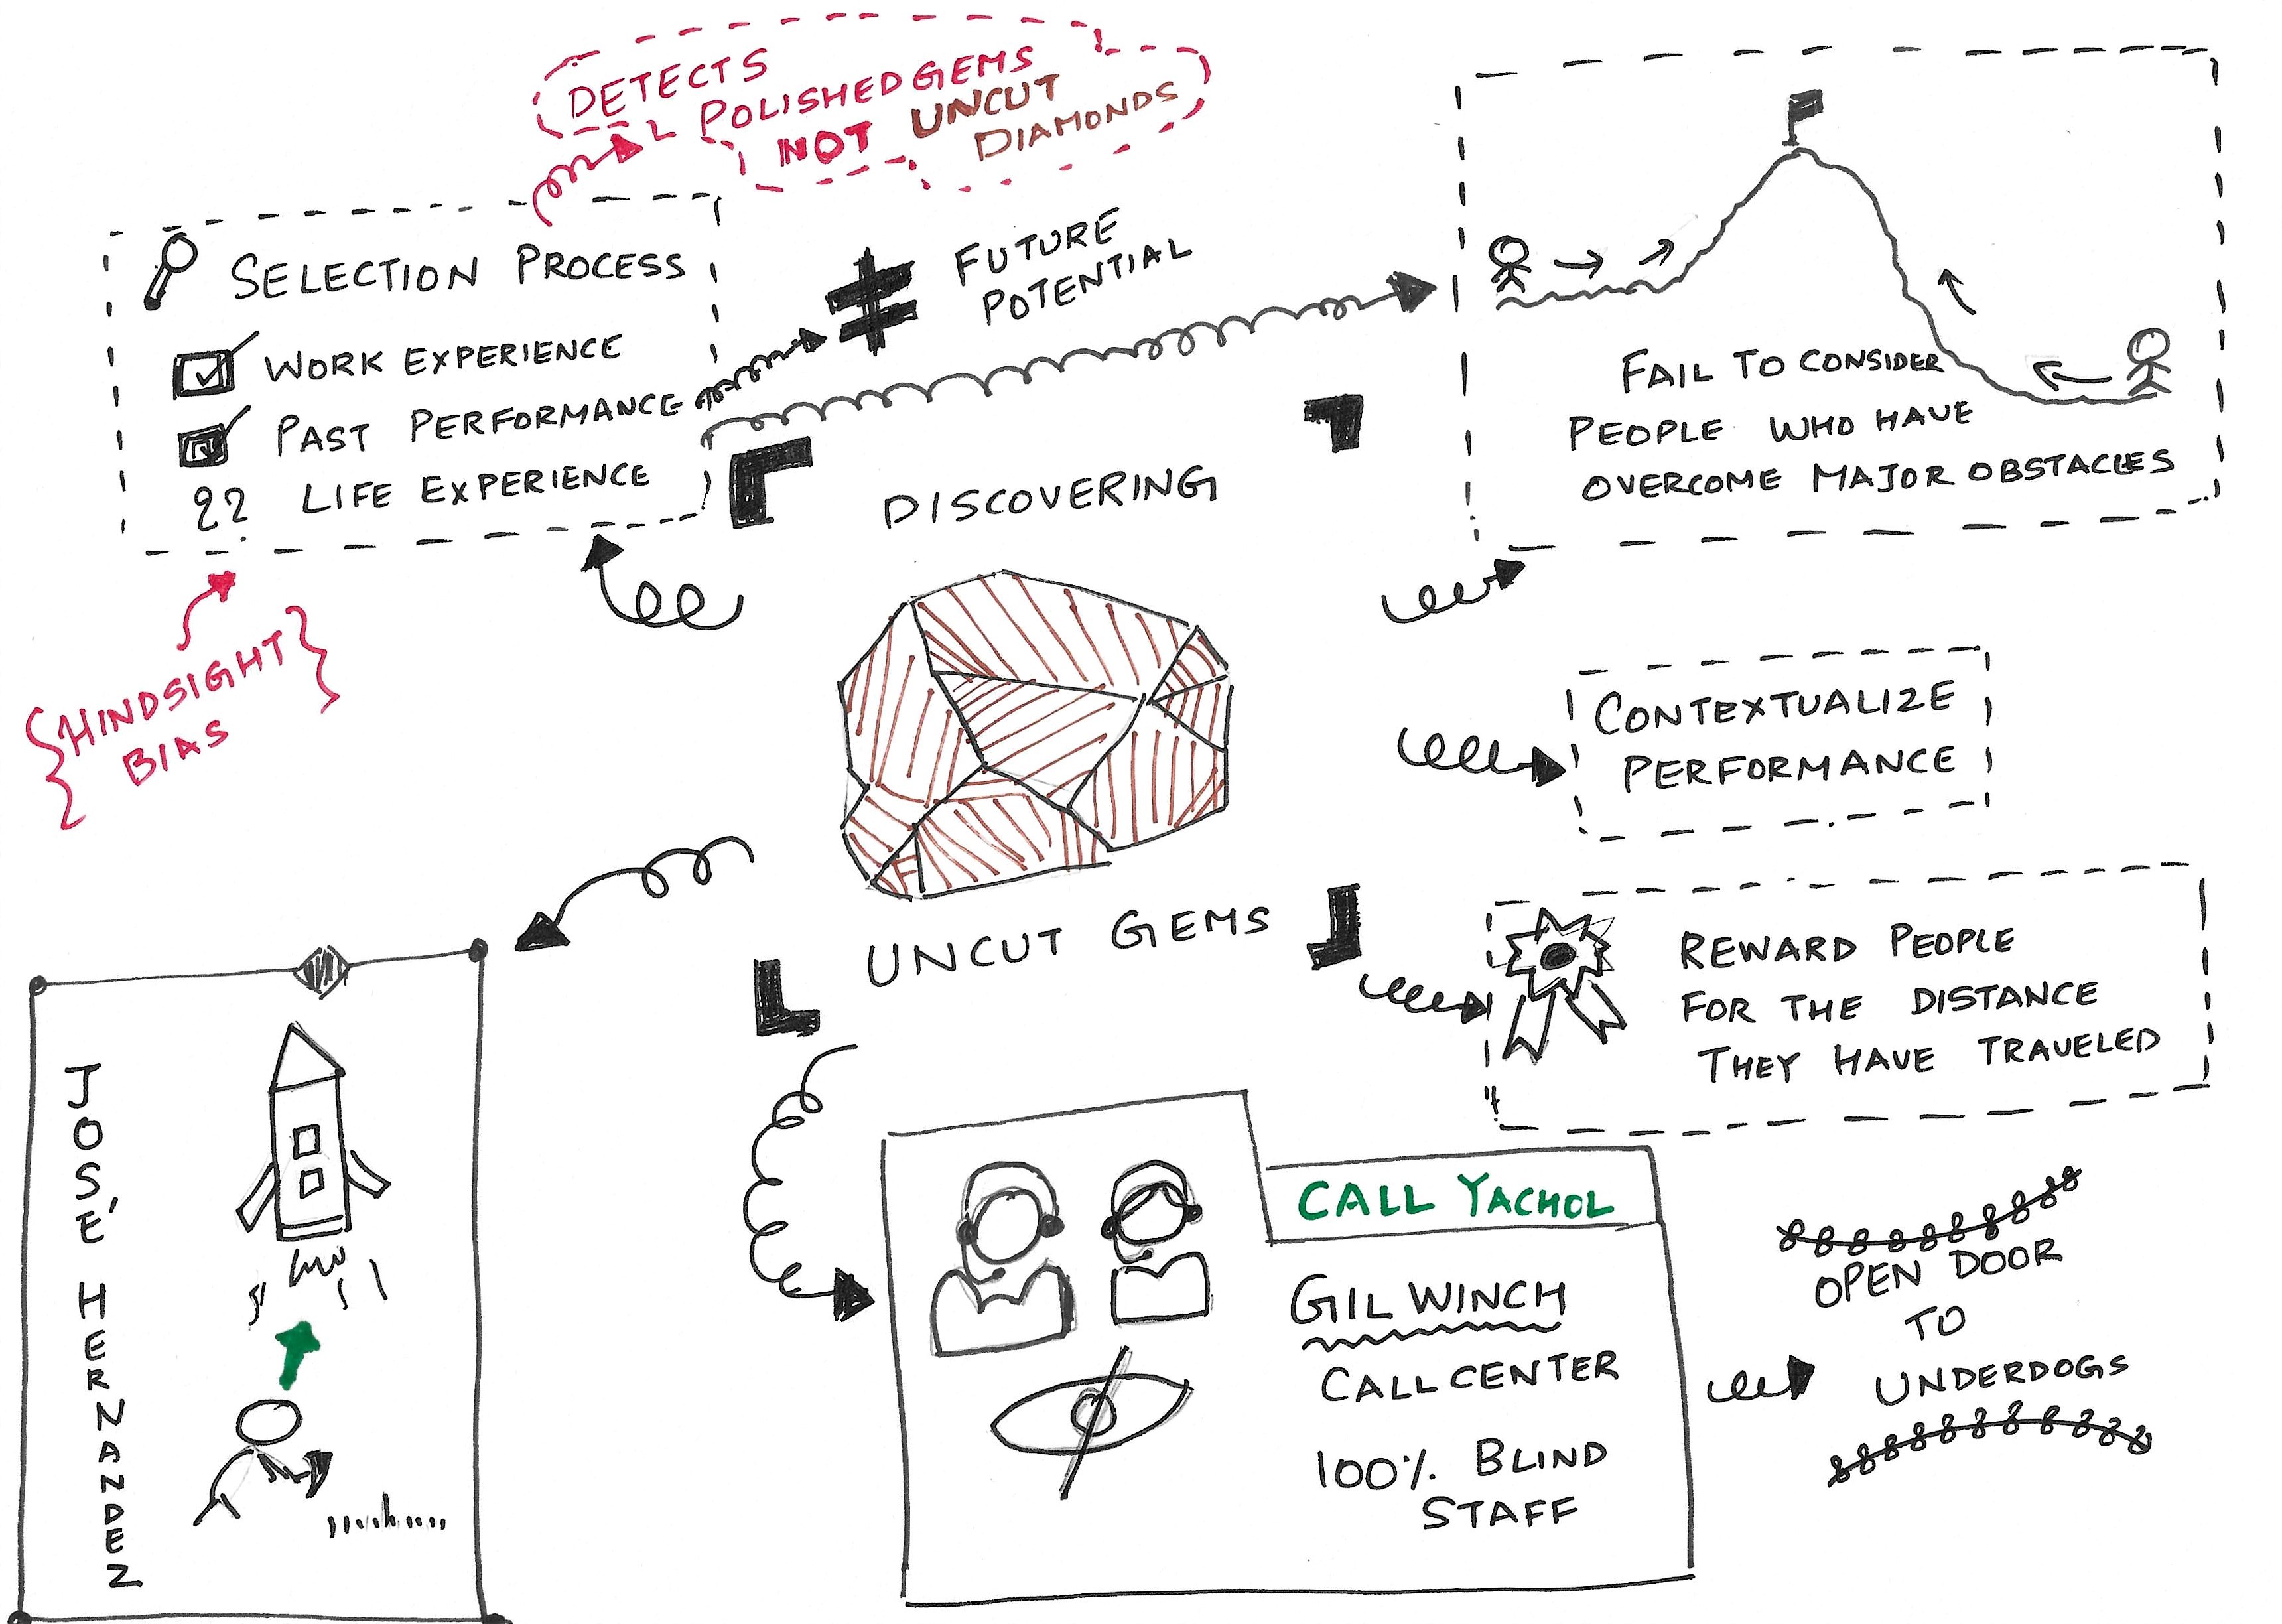 DETECTS
POLISHED GEMS
NOT UNCUT
DIAMONDS
SELECTION PROCESS
WORK EXPERIENCE
PAST PERFORMANCE
?? LIFE EXPERIENCE
≠ FUTURE
POTENTIAL
HINDSIGHT
BIAS
FAIL TO CONSIDER
PEOPLE WHO HAVE
OVERCOME MAJOR OBSTACLES
DISCOVERING
UNCUT GEMS
CONTEXTUALIZE
PERFORMANCE
REWARD PEOPLE
FOR THE DISTANCE
THEY HAVE TRAVELED
JOSÉ HERNANDEZ
CALL YACHOL
GIL WINCH
CALL CENTER
100% BLIND
STAFF
OPEN DOOR
TO
UNDERDOGS